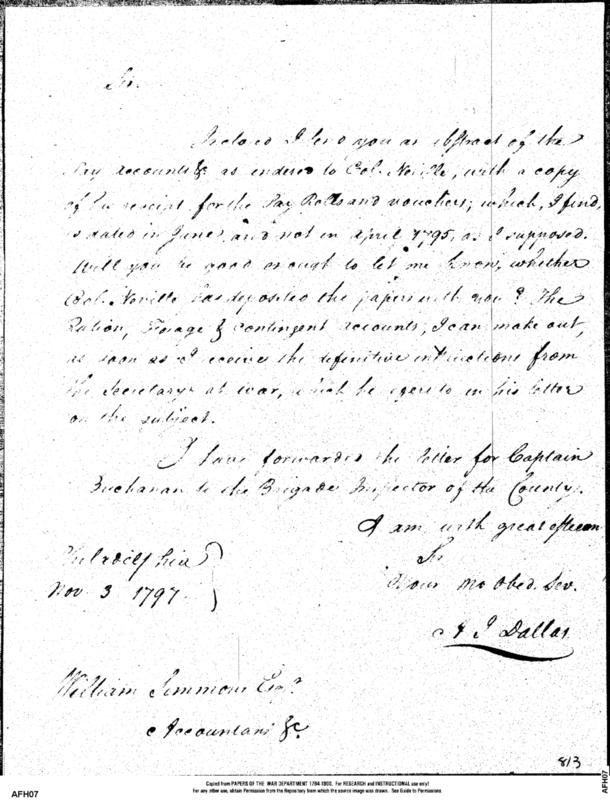 Sir.
Inclosed I send you an abstract of the
Pay accounts &c as rendered to Col. Neville, with a copy
of his receipt for the Pay Rolls and vouchers; which, I find,
is dated in June, and not in April 1795, as I supposed.
Will you be good enough to let me know, whether
Col. Neville has deposited the papers with you? The
Ration, Forage & Contingent accounts, I can make out,
as soon as I receive the definitive instructions from
the Secretary at war, which he refers to in his letter
on the subject.
I have forwarded the letter for Captain
Buchanan to the Brigade Inspector of the County.
I am with great esteem
Sir
Your Mo Obed. Ser.
A J Dallas
Philadelphia
Nov. 3 1797.
William Simmons Esqr.
Accountant &c.
813
Copied from PAPERS OF THE WAR DEPARTMENT 1784-1800. For RESEARCH and INSTRUCTIONAL use only!
For any other use, obtain Permission from the Repository from which the source image was drawn. See Guide to Permissions.
AFH07
AFH07